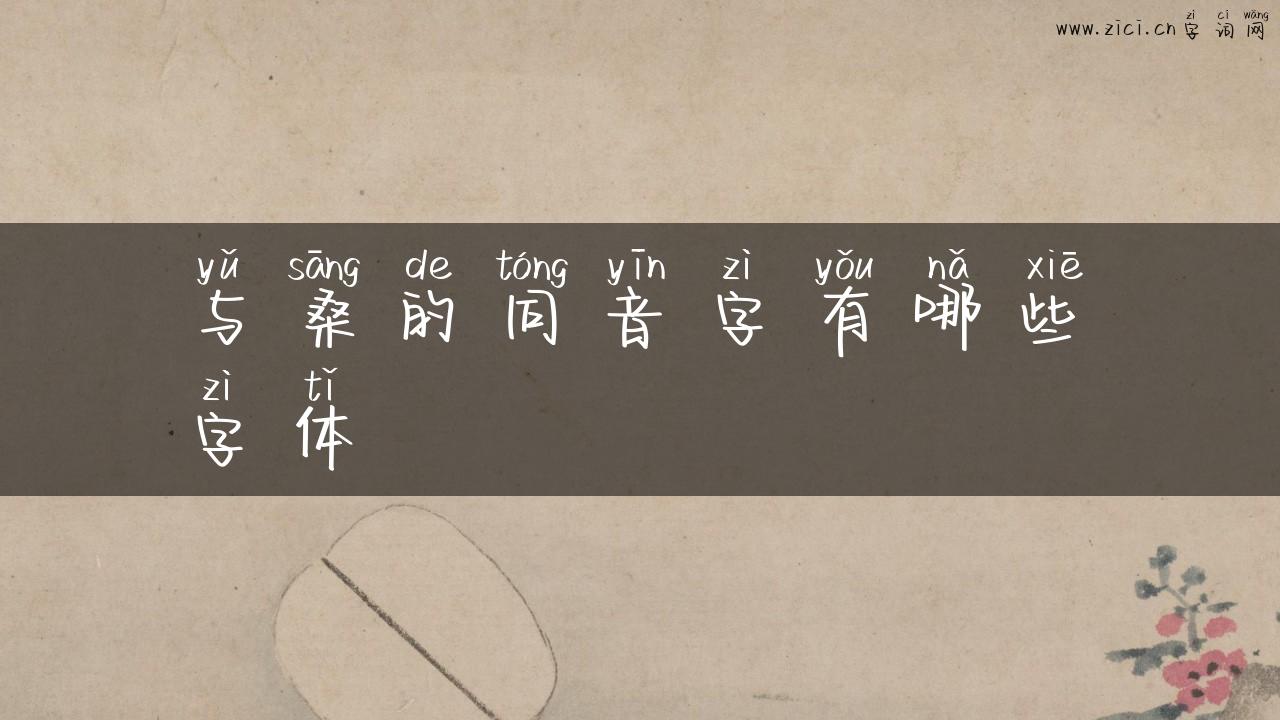 zì cí wǎng
www.zici.cn字词网
yǔ sāng de tóng yīn zì yǒu nǎ xiē
与桑的同音字有哪些
zì tǐ
字体